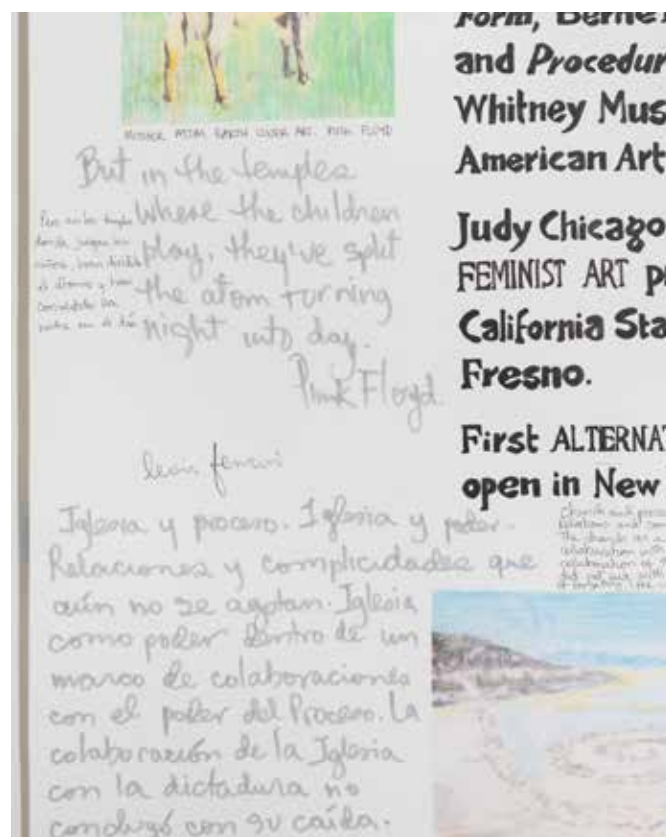 MOTHER ATOM EARTH COVER ART. PINK FLOYD
But in the temples
where the children
play, they've split
the atom turning
night into day.
Pink Floyd.
león ferrari
Iglesia y proceso. Iglesia y poder.
Relaciones y complicidades que
aún no se agotan. Iglesia
como poder dentro de un
marco de colaboraciones
con el poder del Proceso. La
colaboración de la Iglesia
con la dictadura no
concluyó con su caída.
Form, Berne
and Procedur
Whitney Mus
American Art
Judy Chicago
FEMINIST ART p
California Sta
Fresno.
First ALTERNAT
open in New
Church and
The church as a